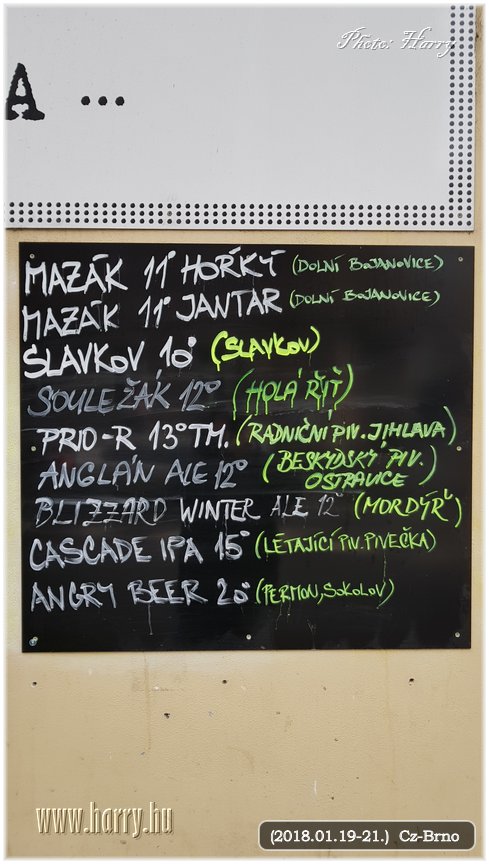 Photo: Harry
A ...
MAZÁK 11° HOŘKÝ (DOLNÍ BOJANOVICE)
MAZÁK 11° JANTAR (DOLNÍ BOJANOVICE)
SLAVKOV 10° (SLAVKOV)
SOULEŽÁK 12° (HOLÁ ŘIŤ)
PRIO-R 13° TM. (RADNIČNÍ PIV. JIHLAVA)
ANGLÁN ALE 12° (BESKYDSKÝ PIV. OSTRAVICE)
BLIZZARD WINTER ALE 12° (MORDÝŘ)
CASCADE IPA 15° (LÉTAJÍCÍ PIV. PIVEČKA)
ANGRY BEER 20° (PERMON, SOKOLOV)
www.harry.hu
(2018.01.19-21.) Cz-Brno